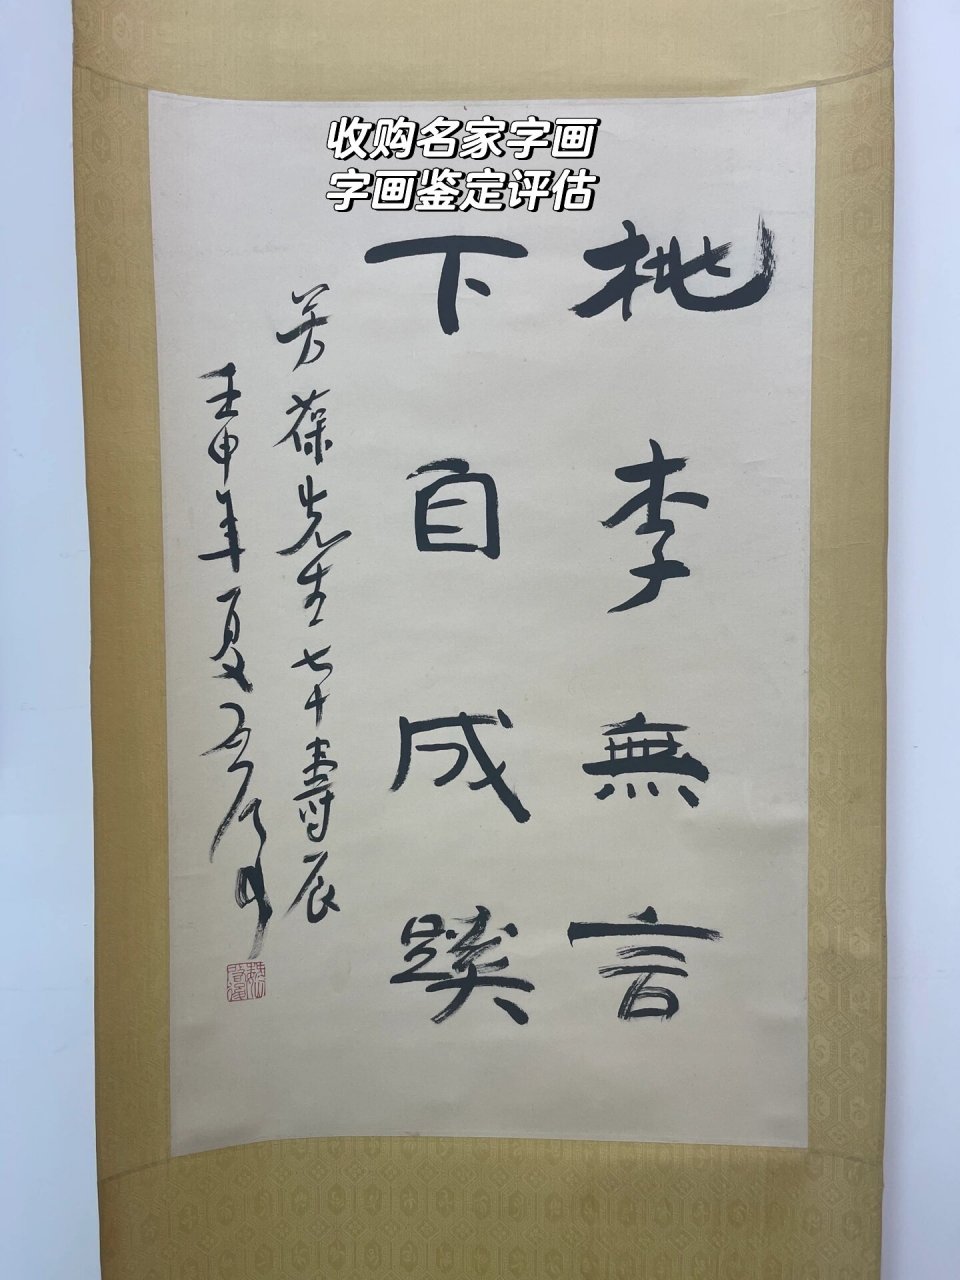 收购名家字画
字画鉴定评估
桃李無言
下自成蹊
芳葆先生七十壽辰
壬申年夏